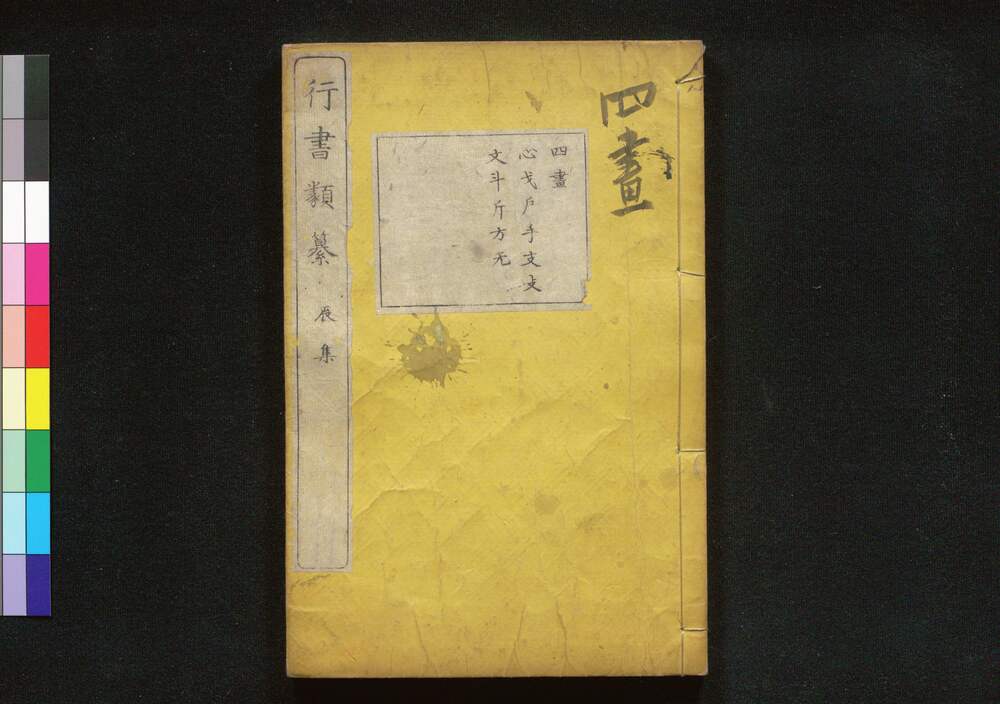 四畫
四畫
心戈戶手支攴
文斗斤方无
行書類纂 辰集